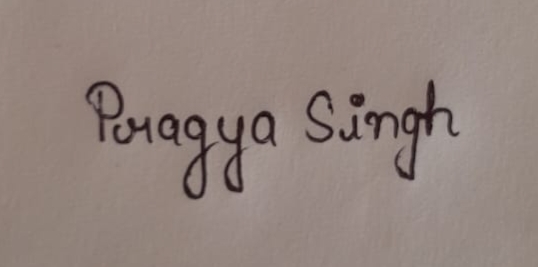 Pragya Singh